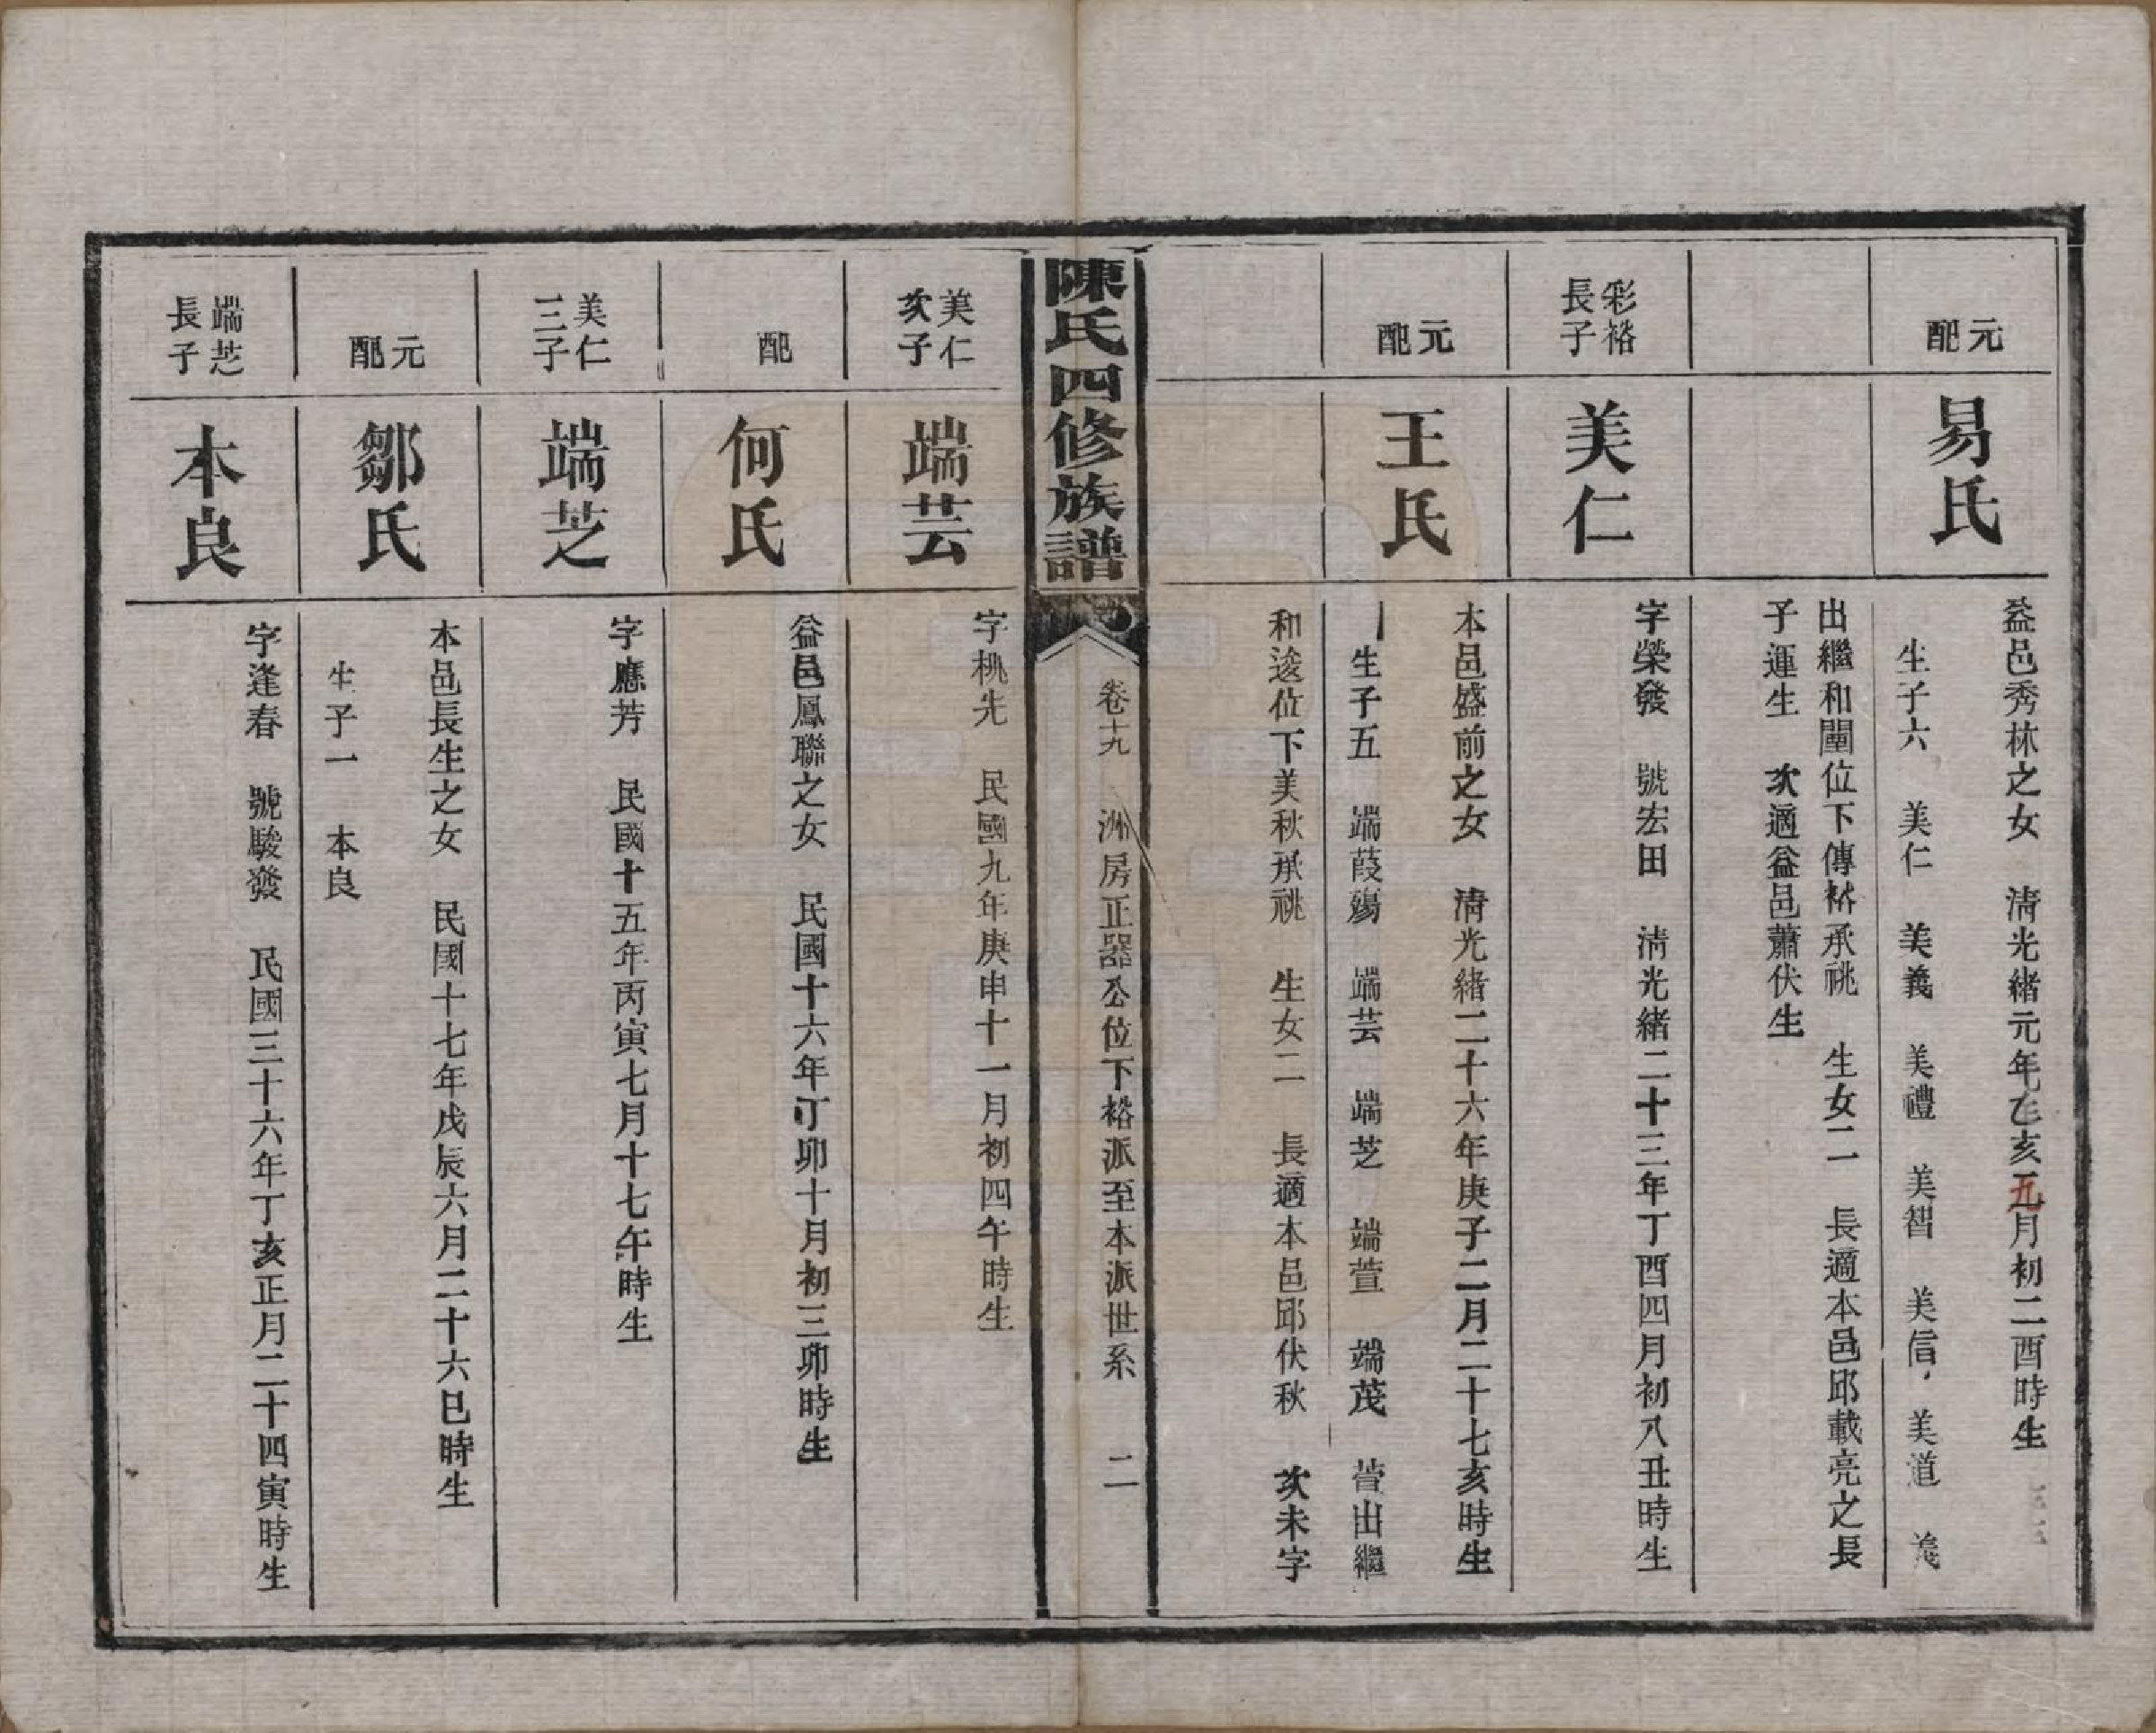 元配
易氏
益邑秀林之女　清光緒元年乙亥九月初二酉時生
生子六　美仁　美義　美禮　美智　美信　美道　義
出繼和闓位下傳裕承祧　生女二　長適本邑邱載亮之長
子運生　次適益邑蕭伏生
彩裕長子
美仁
字榮發　號宏田　清光緒二十三年丁酉四月初八丑時生
元配
王氏
本邑盛前之女　清光緒二十六年庚子二月二十七亥時生
生子五　端葭殤　端芸　端芝　端萱　端茂　萱出繼
和逵位下美秋承祧　生女二　長適本邑邱伏秋　次未字
陳氏四修族譜
卷十九　洲房正器公位下裕派至本派世系　二
美仁次子
端芸
字桃先　民國九年庚申十一月初四午時生
配
何氏
益邑鳳聯之女　民國十六年丁卯十月初三卯時生
美仁三子
端芝
字應芳　民國十五年丙寅七月十七午時生
元配
鄒氏
本邑長生之女　民國十七年戊辰六月二十六巳時生
生子一　本良
端芝長子
本良
字逢春　號駿發　民國三十六年丁亥正月二十四寅時生